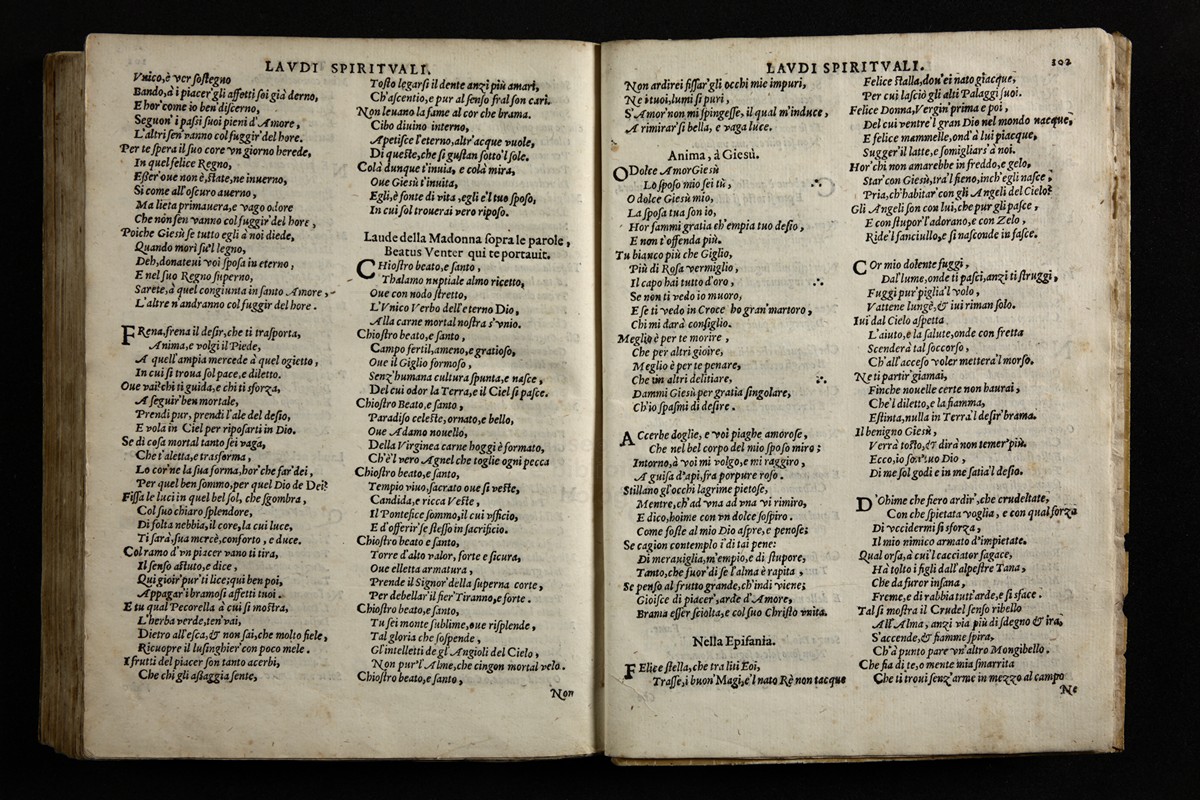 LAVDI SPIRITVALI.
Vnico, è ver sostegno
Bando, à i piacer'gli affetti soi già derno,
E hor'come io ben'discerno,
Seguon' i passi suoi pieni d'Amore,
L'altri sen'vanno col fuggir'del hore.
Per te spera il suo core vn giorno herede,
In quel felice Regno,
Esser oue non è, state, ne inuerno,
Si come all'oscuro auerno,
Ma lieta primauera, e vago odore
Che non sen vanno col fuggir'del hore,
Poiche Giesù se tutto egli à noi diede,
Quando morì su'l legno,
Deh, donateui voi sposa in eterno,
E nel suo Regno superno,
Sarete, à quel congiunta in santo Amore,
L'altre n'andranno col fuggir'del hore.
FRena, frena il desir, che ti trasporta,
Anima, e volgi il Piede,
A quell'ampia mercede à quel ogietto,
In cui si troua sol pace, e diletto.
Oue vai? chi ti guida, e chi ti sforza,
A seguir'ben mortale,
Prendi pur, prendi l'ale del desio,
E vola in Ciel per riposarti in Dio.
Se di cosa mortal tanto sei vaga,
Che t'aletta, e trasforma,
Lo cor'ne la sua forma, hor'che far'dei,
Per quel ben sommo, per quel Dio de Dei?
Fissa le luci in quel bel sol, che sgombra,
Col suo chiaro splendore,
Di folta nebbia, il core, la cui luce,
Ti sarà, sua mercè, conforto, e duce.
Col ramo d'vn piacer vano ti tira,
Il senso astuto, e dice,
Qui gioir'pur'ti lice; qui ben poi,
Appagar'i bramosi affetti tuoi.
E tu qual Pecorella à cui si mostra,
L'herba verde, ten'vai,
Dietro all'esca, & non sai, che molto fiele,
Ricuopre il lusinghier'con poco mele.
I frutti del piacer son tanto acerbi,
Che chi gli assaggia sente,
Tosto legarsi il dente anzi più amari,
Ch'ascentio, e pur al senso fral son cari.
Non leuano la fame al cor che brama.
Cibo diuino interno,
Apetisce l'eterno, altr'acque vuole,
Di queste, che si gustan sotto'l sole.
Colà dunque t'inuia, e colà mira,
Oue Giesù t'inuita,
Egli, è fonte di vita, egli e'l tuo sposo,
In cui sol trouerai vero riposo.
Laude della Madonna sopra le parole,
Beatus Venter qui te portauit.
CHiostro beato, e santo,
Thalamo nuptiale almo ricetto,
Oue con nodo stretto,
L'Vnico Verbo dell'eterno Dio,
Alla carne mortal nostra s'vnio.
Chiostro beato, e santo,
Campo fertil, ameno, e gratioso,
Oue il Giglio formoso,
Senz'humana cultura spunta, e nasce,
Del cui odor la Terra, e il Ciel si pasce.
Chiostro Beato, e santo,
Paradiso celeste, ornato, e bello,
Oue Adamo nouello,
Della Virginea carne hoggi è formato,
Ch'è'l vero Agnel che toglie ogni pecca
Chiostro beato, e santo,
Tempio viuo, sacrato oue si veste,
Candida, e ricca Veste,
Il Pontefice sommo, il cui vfficio,
E d'offerir'se stesso in sacrificio.
Chiostro beato e santo,
Torre d'alto valor, forte e sicura,
Oue elletta armatura,
Prende il Signor'della superna corte,
Per debellar'il fier'Tiranno, e forte.
Chiostro beato, e santo,
Tu sei monte sublime, oue risplende,
Tal gloria che sospende,
Gl'intelletti de gl'Angioli del Cielo,
Non pur'l'Alme, che cingon mortal velo.
Chiostro beato, e santo,
Non
LAVDI SPIRITVALI.
102
Non ardirei fissar'gli occhi mie impuri,
Ne i tuoi, lumi si puri,
S'Amor'non mi spingesse, il qual m'induce,
A rimirar'si bella, e vaga luce.
Anima, à Giesù.
O Dolce Amor Giesù
Lo sposo mio sei tù,
O dolce Giesù mio,
La sposa tua son io,
Hor fammi gratia ch'empia tuo desio,
E non t'offenda più.
Tu bianco più che Giglio,
Più di Rosa vermiglio,
Il capo hai tutto d'oro,
Se non ti vedo io muoro,
E se ti vedo in Croce ho gran'martoro,
Chi mi darà consiglio.
Meglio è per te morire,
Che per altri gioire,
Meglio è per te penare,
Che in altri delitiare,
Dammi Giesù per gratia singolare,
Ch'io spasmi di desire.
ACcerbe doglie, e voi piaghe amorose,
Che nel bel corpo del mio sposo miro;
Intorno, à voi mi volgo, e mi raggiro,
A guisa d'api, fra porpure rose.
Stillano gl'occhi lagrime pietose,
Mentre, ch'ad vna ad vna vi rimiro,
E dico, hoime con vn dolce sospiro.
Come foste al mio Dio aspre, e penose;
Se cagion contemplo i di tai pene:
Di merauiglia, m'empio, e di stupore,
Tanto, che fuor'di se l'alma è rapita,
Se penso al frutto grande, ch'indi viene;
Gioisce di piacer', arde d'Amore,
Brama esser sciolta, e col suo Christo vnita.
Nella Epifania.
FElice stella, che tra liti Eoi,
Trasse, i buon'Magi, e'l nato Rè non tacque
Felice stalla, dou'ei nato giacque,
Per cui lasciò gli alti Palaggi suoi.
Felice Donna, Vergin'prima e poi,
Del cui ventre'l gran Dio nel mondo nacque,
E felice mammelle, ond'à lui piacque,
Sugger'il latte, e somigliars'à noi.
Hor'chi non amarebbe in freddo, e gelo,
Star'con Giesù, trà'l fieno, inch'egli nasce;
Pria, ch'habitar'con gli Angeli del Cielo?
Gli Angeli son con lui, che pur gli pasce,
E con stupor'l'adorano, e con Zelo,
Ride'l fanciullo, e si nasconde in fasce.
COr mio dolente fuggi,
Dal lume, onde ti pasci, anzi ti struggi,
Fuggi pur'piglia'l volo,
Vattene lungè, & iui riman solo.
Iui dal Cielo aspetta
L'aiuto, e la salute, onde con fretta
Scenderà tal soccorso,
Ch'all'acceso voler metterà'l morso.
Ne ti partir'giamai,
Finche nouelle certe non haurai,
Che'l diletto, e la fiamma,
Estinta, nulla in Terra'l desir'brama.
Il benigno Giesù,
Verrà tosto, & dirà non temer'più.
Ecco, io son'tuo Dio,
Di me sol godi e in me satia'l desio.
D'Ohime che fiero ardir', che crudeltate,
Con che spietata voglia, e con qual forza
Di vccidermi si sforza,
Il mio nimico armato d'impietate.
Qual orsa, à cui'l cacciator sagace,
Hà tolto i figli dall'alpestre Tana,
Che da furor insana,
Freme, e di rabbia tutt'arde, e si sface.
Tal si mostra il Crudel senso ribello
All'Alma, anzi via più di sdegno & ira,
S'accende, & fiamme spira,
Ch'à punto pare vn'altro Mongibello.
Che fia di te, o mente mia smarrita
Che ti troui senz'arme in mezzo al campo
Ne